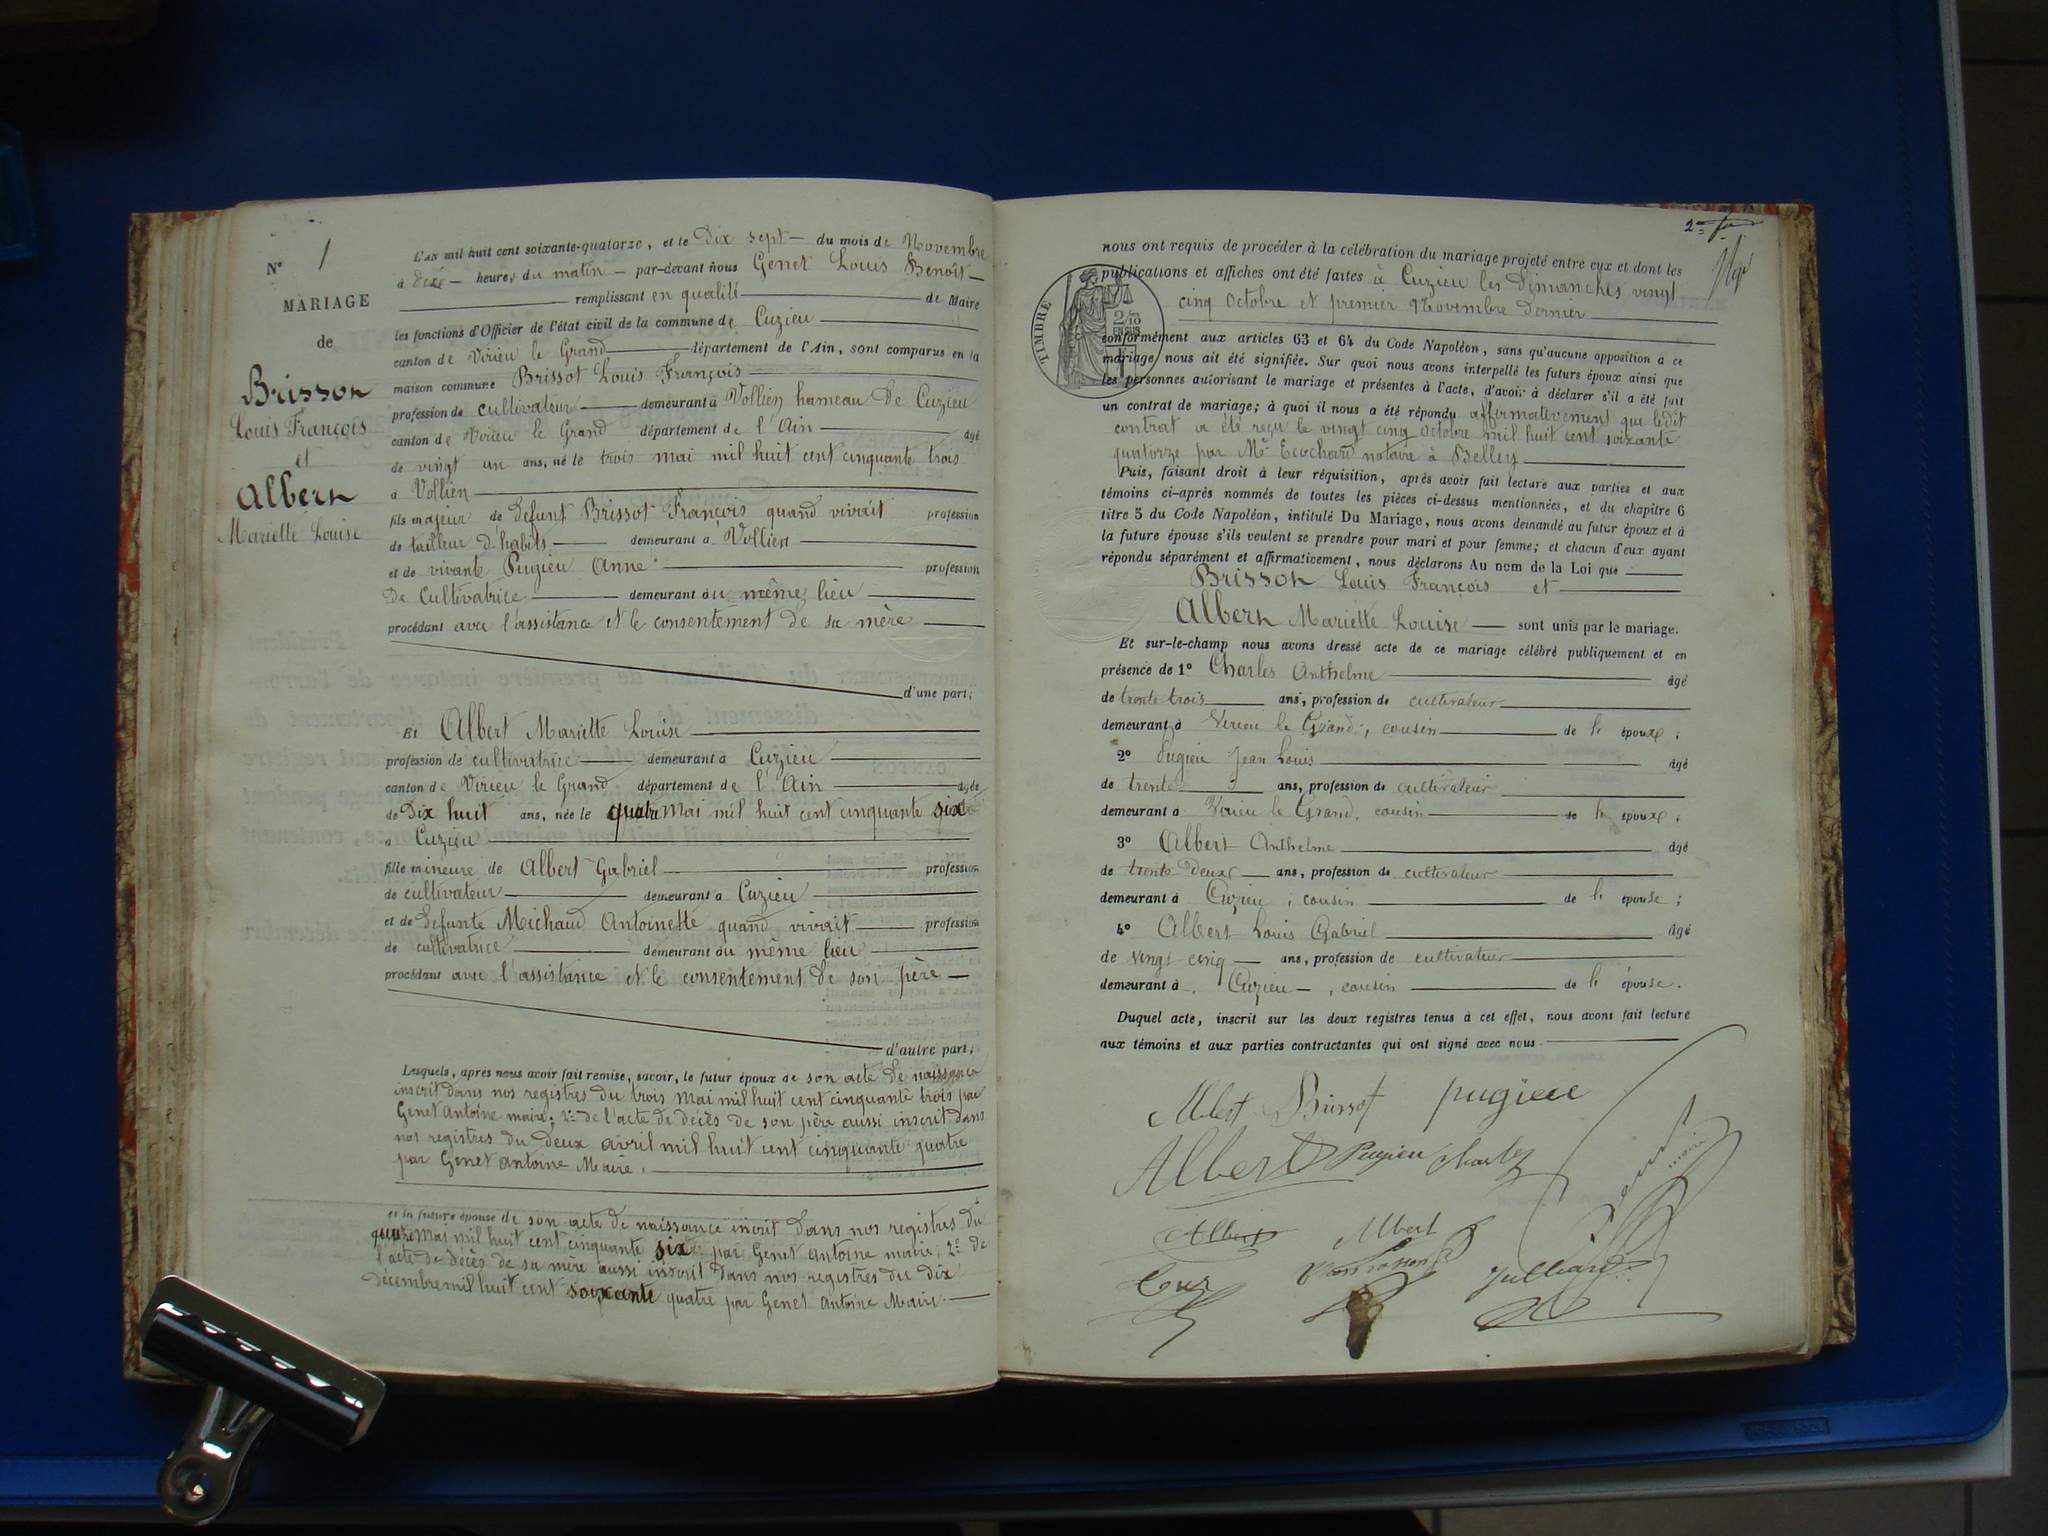 N° 1
MARIAGE
de
Brissot
Louis François
et
Albert
Mariette Louise
L'an mil huit cent soixante-quatorze, et le Dix sept du mois de Novembre
à dix heures du matin par-devant nous Genet Louis Benoit
remplissant en qualité de Maire
les fonctions d'Officier de l'état civil de la commune de Cuzieu
canton de Virieu le Grand département de l'Ain, sont comparus en la
maison commune Brissot Louis François
profession de cultivateur demeurant à Vollien hameau de Cuzieu
canton de Virieu le Grand département de l'Ain âgé
de vingt un ans, né le trois mai mil huit cent cinquante trois
à Vollien
fils majeur de défunt Brissot François quand vivait profession
de tailleur d'habits demeurant à Vollien
et de vivante Pugieu Anne profession
De Cultivatrice demeurant au même lieu
procédant avec l'assistance et le consentement de sa mère
d'une part;
Et Albert Mariette Louise
profession de cultivatrice demeurant à Cuzieu
canton de Virieu le Grand département de l'Ain âgée
de Dix huit ans, née le quatre Mai mil huit cent cinquante six
à Cuzieu
fille mineure de Albert Gabriel profession
de cultivateur demeurant à Cuzieu
et de défunte Michaud Antoinette quand vivait profession
de cultivatrice demeurant au même lieu
procédant avec l'assistance et le consentement de son père
d'autre part;
Lesquels, après nous avoir fait remise, savoir, le futur époux de son acte de naissance
inscrit dans nos registres du trois Mai mil huit cent cinquante trois par
Genet Antoine maire; 2° de l'acte de décès de son père aussi inscrit dans
nos registres du deux avril mil huit cent cinquante quatre
par Genet Antoine Maire.
et la future épouse de son acte de naissance incrit dans nos registres du
quatre Mai mil huit cent cinquante six par Genet Antoine maire; 2° de
l'acte de décès de sa mère aussi inscrit dans nos registres du dix
décembre mil huit cent soixante quatre par Genet Antoine Maire.
2e
nous ont requis de procéder à la célébration du mariage projeté entre eux et dont les
publications et affiches ont été faites à Cuzieu les Dimanches vingt
cinq Octobre et premier Novembre dernier
TIMBRE
2/10
EN SUS
conformément aux articles 63 et 64 du Code Napoléon, sans qu'aucune opposition a ce
mariage nous ait été signifiée. Sur quoi nous avons interpellé les futurs époux ainsi que
les personnes autorisant le mariage et présentes à l'acte, d'avoir à déclarer s'il a été fait
un contrat de mariage; à quoi il nous a été répondu affirmativement que ledit
contrat a été reçu le vingt cinq Octobre mil huit cent soixante
quatorze par Me Ecochard notaire à Belley
Puis, faisant droit à leur réquisition, après avoir fait lecture aux parties et aux
témoins ci-après nommés de toutes les pièces ci-dessus mentionnées, et du chapitre 6
titre 5 du Code Napoléon, intitulé Du Mariage, nous avons demandé au futur époux et à
la future épouse s'ils veulent se prendre pour mari et pour femme; et chacun d'eux ayant
répondu séparément et affirmativement, nous déclarons Au nom de la Loi que
Brissot Louis François et
Albert Mariette Louise sont unis par le mariage.
Et sur-le-champ nous avons dressé acte de ce mariage célébré publiquement et en
présence de 1° Charles Anthelme âgé
de trente trois ans, profession de cultivateur
demeurant à Virieu le Grand, cousin de l' époux;
2° Pugieu Jean Louis âgé
de trente ans, profession de cultivateur
demeurant à Virieu le Grand, cousin de l' époux;
3° Albert Anthelme âgé
de trente deux ans, profession de cultivateur
demeurant à Cuzieu, cousin de l' épouse;
4° Albert Louis Gabriel âgé
de vingt cinq ans, profession de cultivateur
demeurant à Cuzieu, cousin de l' épouse.
Duquel acte, inscrit sur les deux registres tenus à cet effet, nous avons fait lecture
aux témoins et aux parties contractantes qui ont signé avec nous.
Albert Brissot pugieu
Albert Pugieu Charles
Albert Albert
Julliard